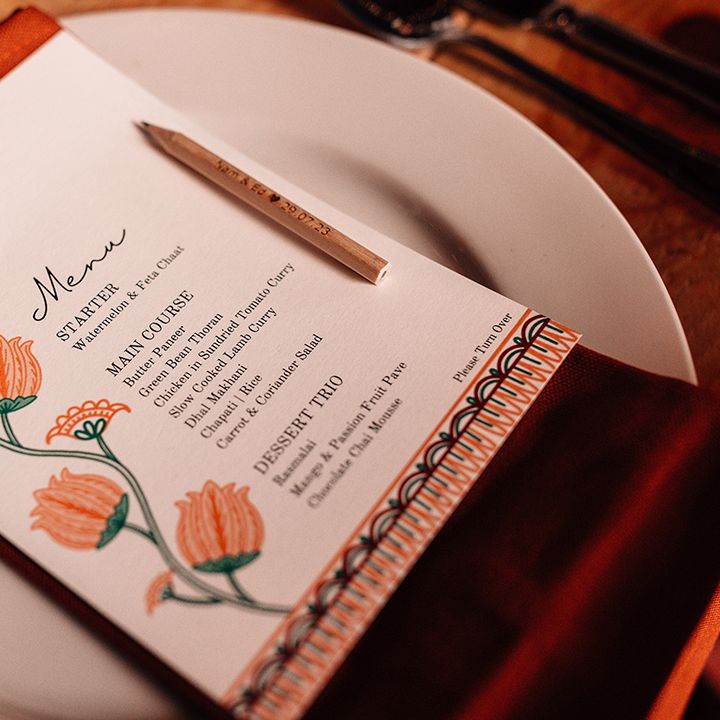 Sam & Ed ♥ 29.07.23
Menu
STARTER
Watermelon & Feta Chaat
MAIN COURSE
Butter Paneer
Green Bean Thoran
Chicken in Sundried Tomato Curry
Slow Cooked Lamb Curry
Dhal Makhani
Chapati | Rice
Carrot & Coriander Salad
DESSERT TRIO
Rasmalai
Mango & Passion Fruit Pave
Chocolate Chai Mousse
Please Turn Over